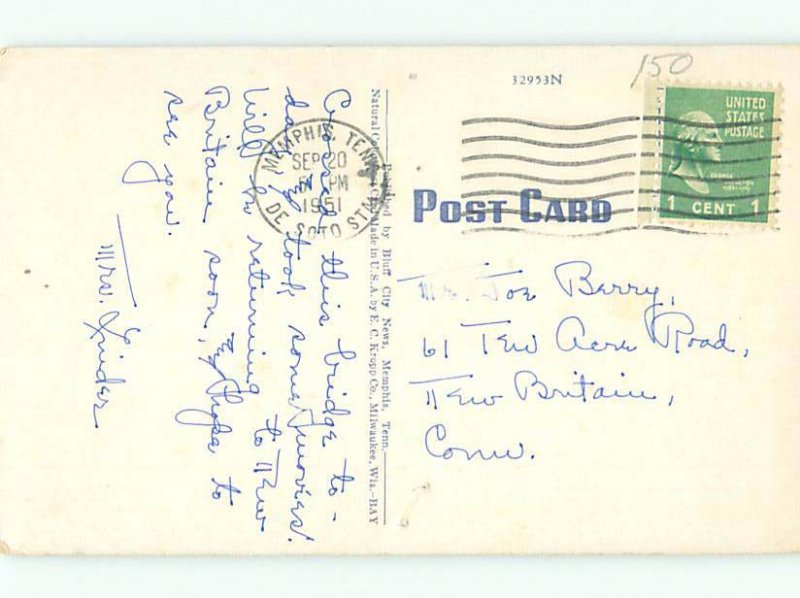 150
32953N
UNITED
STATES
POSTAGE
1 CENT 1
MEMPHIS, TENN.
SEP 20
PM
1951
DE SOTO STA.
POST CARD
Crossed this bridge to-
day & took some movies!
Will be returning to New
Britain soon, & hope to
see you.
Mrs. Linder
Published by Bluff City News, Memphis, Tenn.
Made in U.S.A. by E. C. Kropp Co., Milwaukee, Wis.—BAY
Mr. Joe Berry,
61 Ten Acre Road,
New Britain,
Conn.